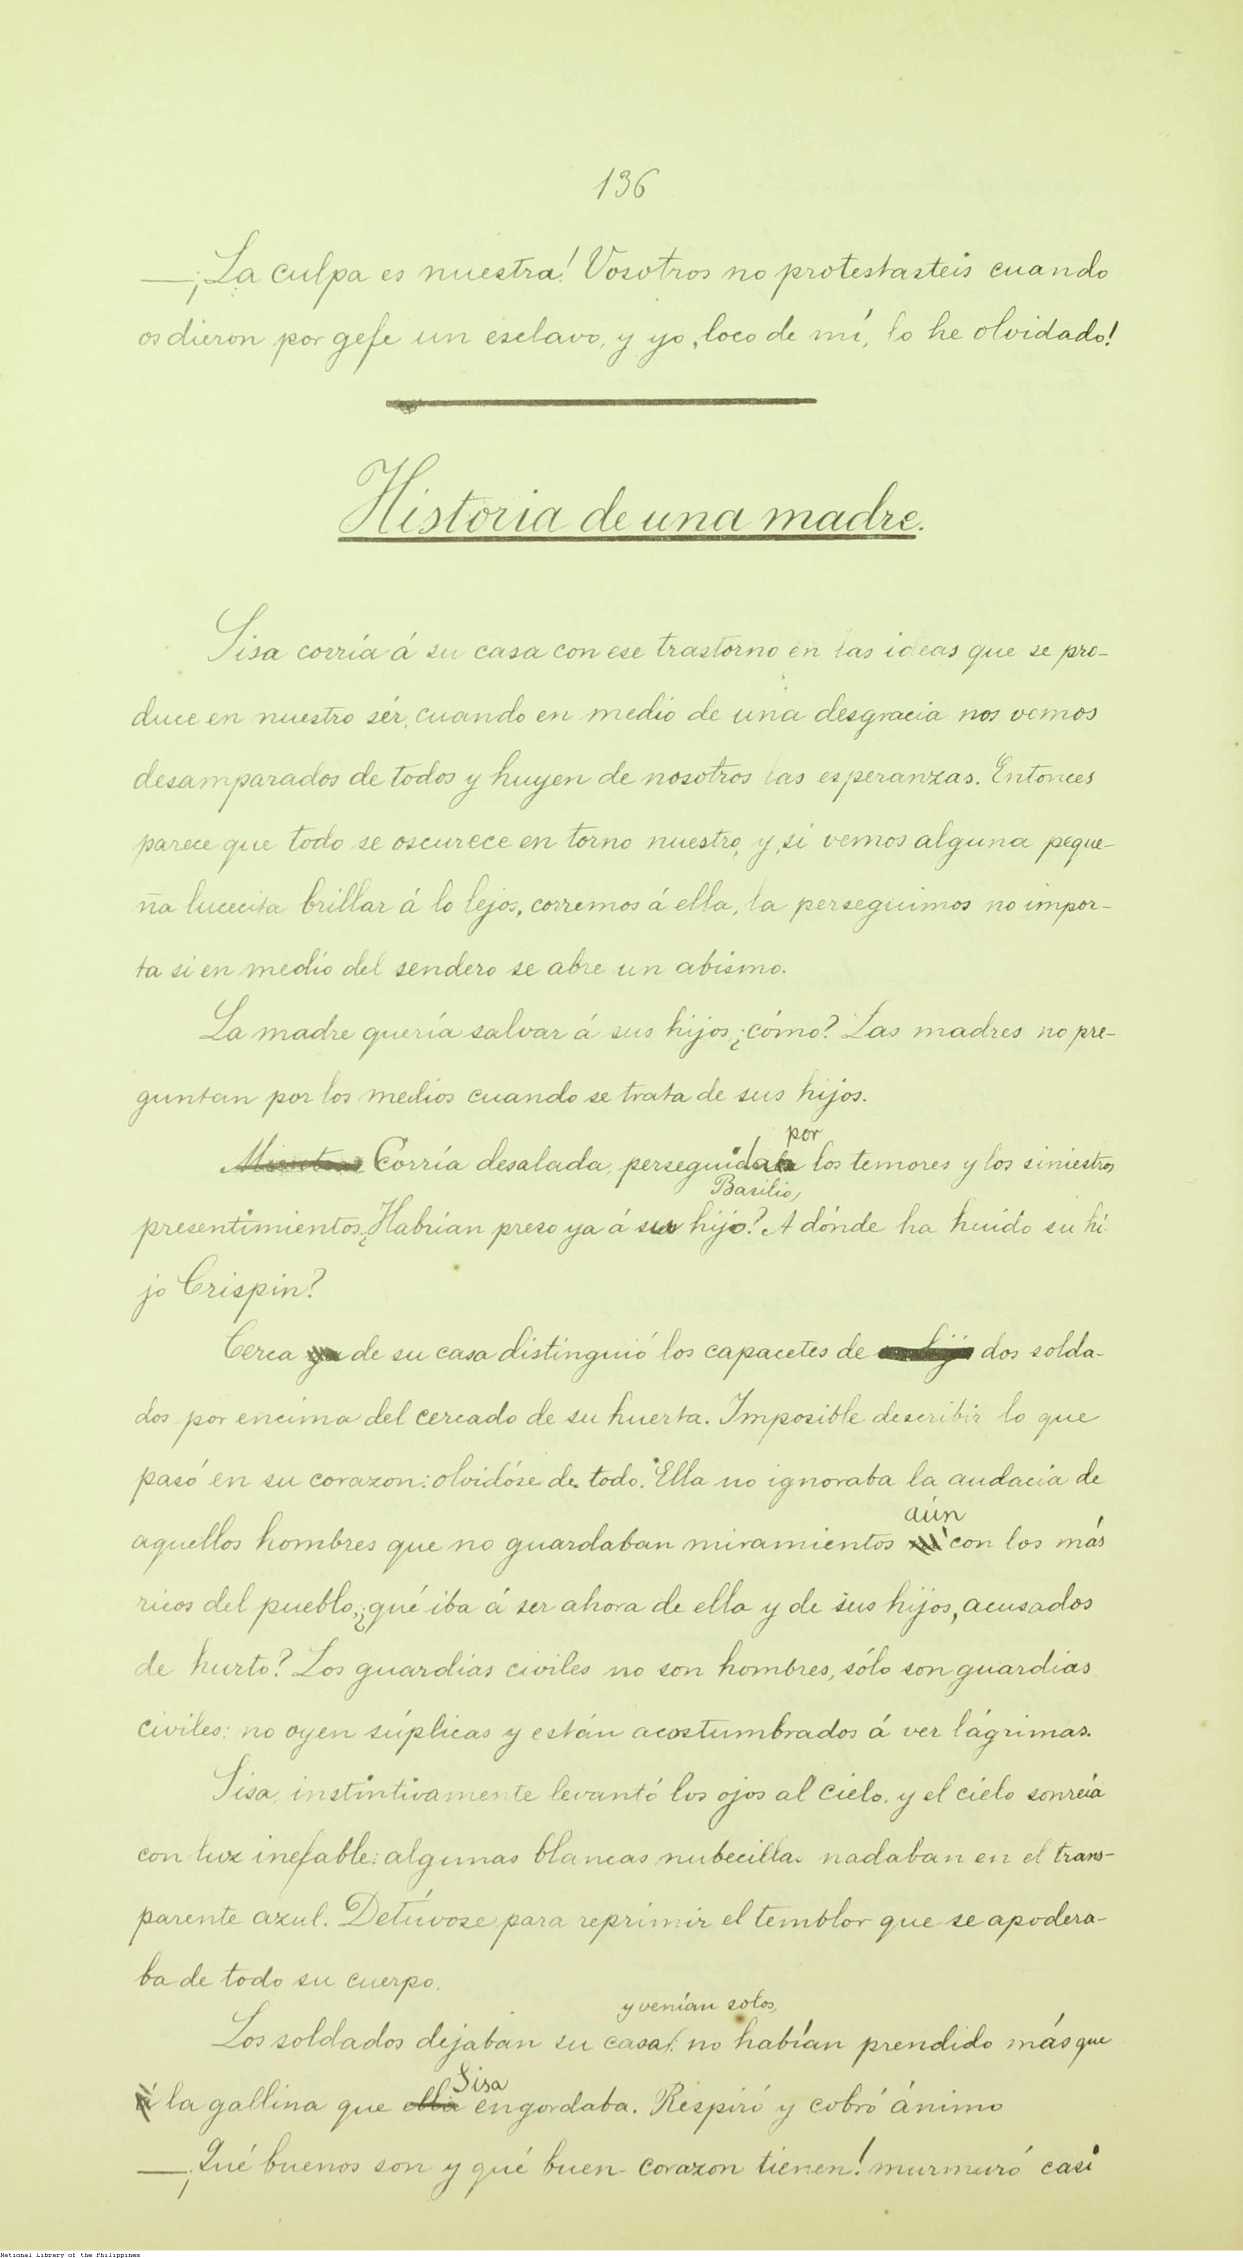 136
—¡La culpa es nuestra! Vosotros no protestasteis cuando
os dieron por gefe un esclavo, y yo, loco de mí, lo he olvidado!
Historia de una madre.
Sisa corría á su casa con ese trastorno en las ideas que se pro-
duce en nuestro sér, cuando en medio de una desgracia nos vemos
desamparados de todos y huyen de nosotros las esperanzas. Entonces
parece que todo se oscurece en torno nuestro, y, si vemos alguna peque-
ña lucecita brillar á lo lejos, corremos á ella, la perseguimos no impor-
ta si en medio del sendero se abre un abismo.
La madre quería salvar á sus hijos, ¿cómo? Las madres no pre-
guntan por los medios cuando se trata de sus hijos.
por
Mientras Corría desalada, perseguida los temores y los siniestros
Basilio,
presentimientos. ¿Habrían preso ya á su hijo? A dónde ha huído su hi
jo Crispin?
Cerca ya de su casa distinguió los capacetes de dos solda-
dos por encima del cercado de su huerta. Imposible describir lo que
pasó en su corazon: olvidóse de todo. Ella no ignoraba la audacia de
aún
aquellos hombres que no guardaban miramientos con los más
ricos del pueblo, ¿qué iba á ser ahora de ella y de sus hijos, acusados
de hurto? Los guardias civiles no son hombres, sólo son guardias
civiles: no oyen súplicas y están acostumbrados á ver lágrimas.
Sisa, instintivamente levantó los ojos al cielo, y el cielo sonreía
con luz inefable: algunas blancas nubecillas nadaban en el trans-
parente azul. Detúvose para reprimir el temblor que se apodera-
ba de todo su cuerpo.
y venían solos,
Los soldados dejaban su casa, no habían prendido más que
Sisa
á la gallina que ella engordaba. Respiró y cobró ánimo
—¡Qué buenos son y qué buen corazon tienen! murmuró casi
National Library of the Philippines